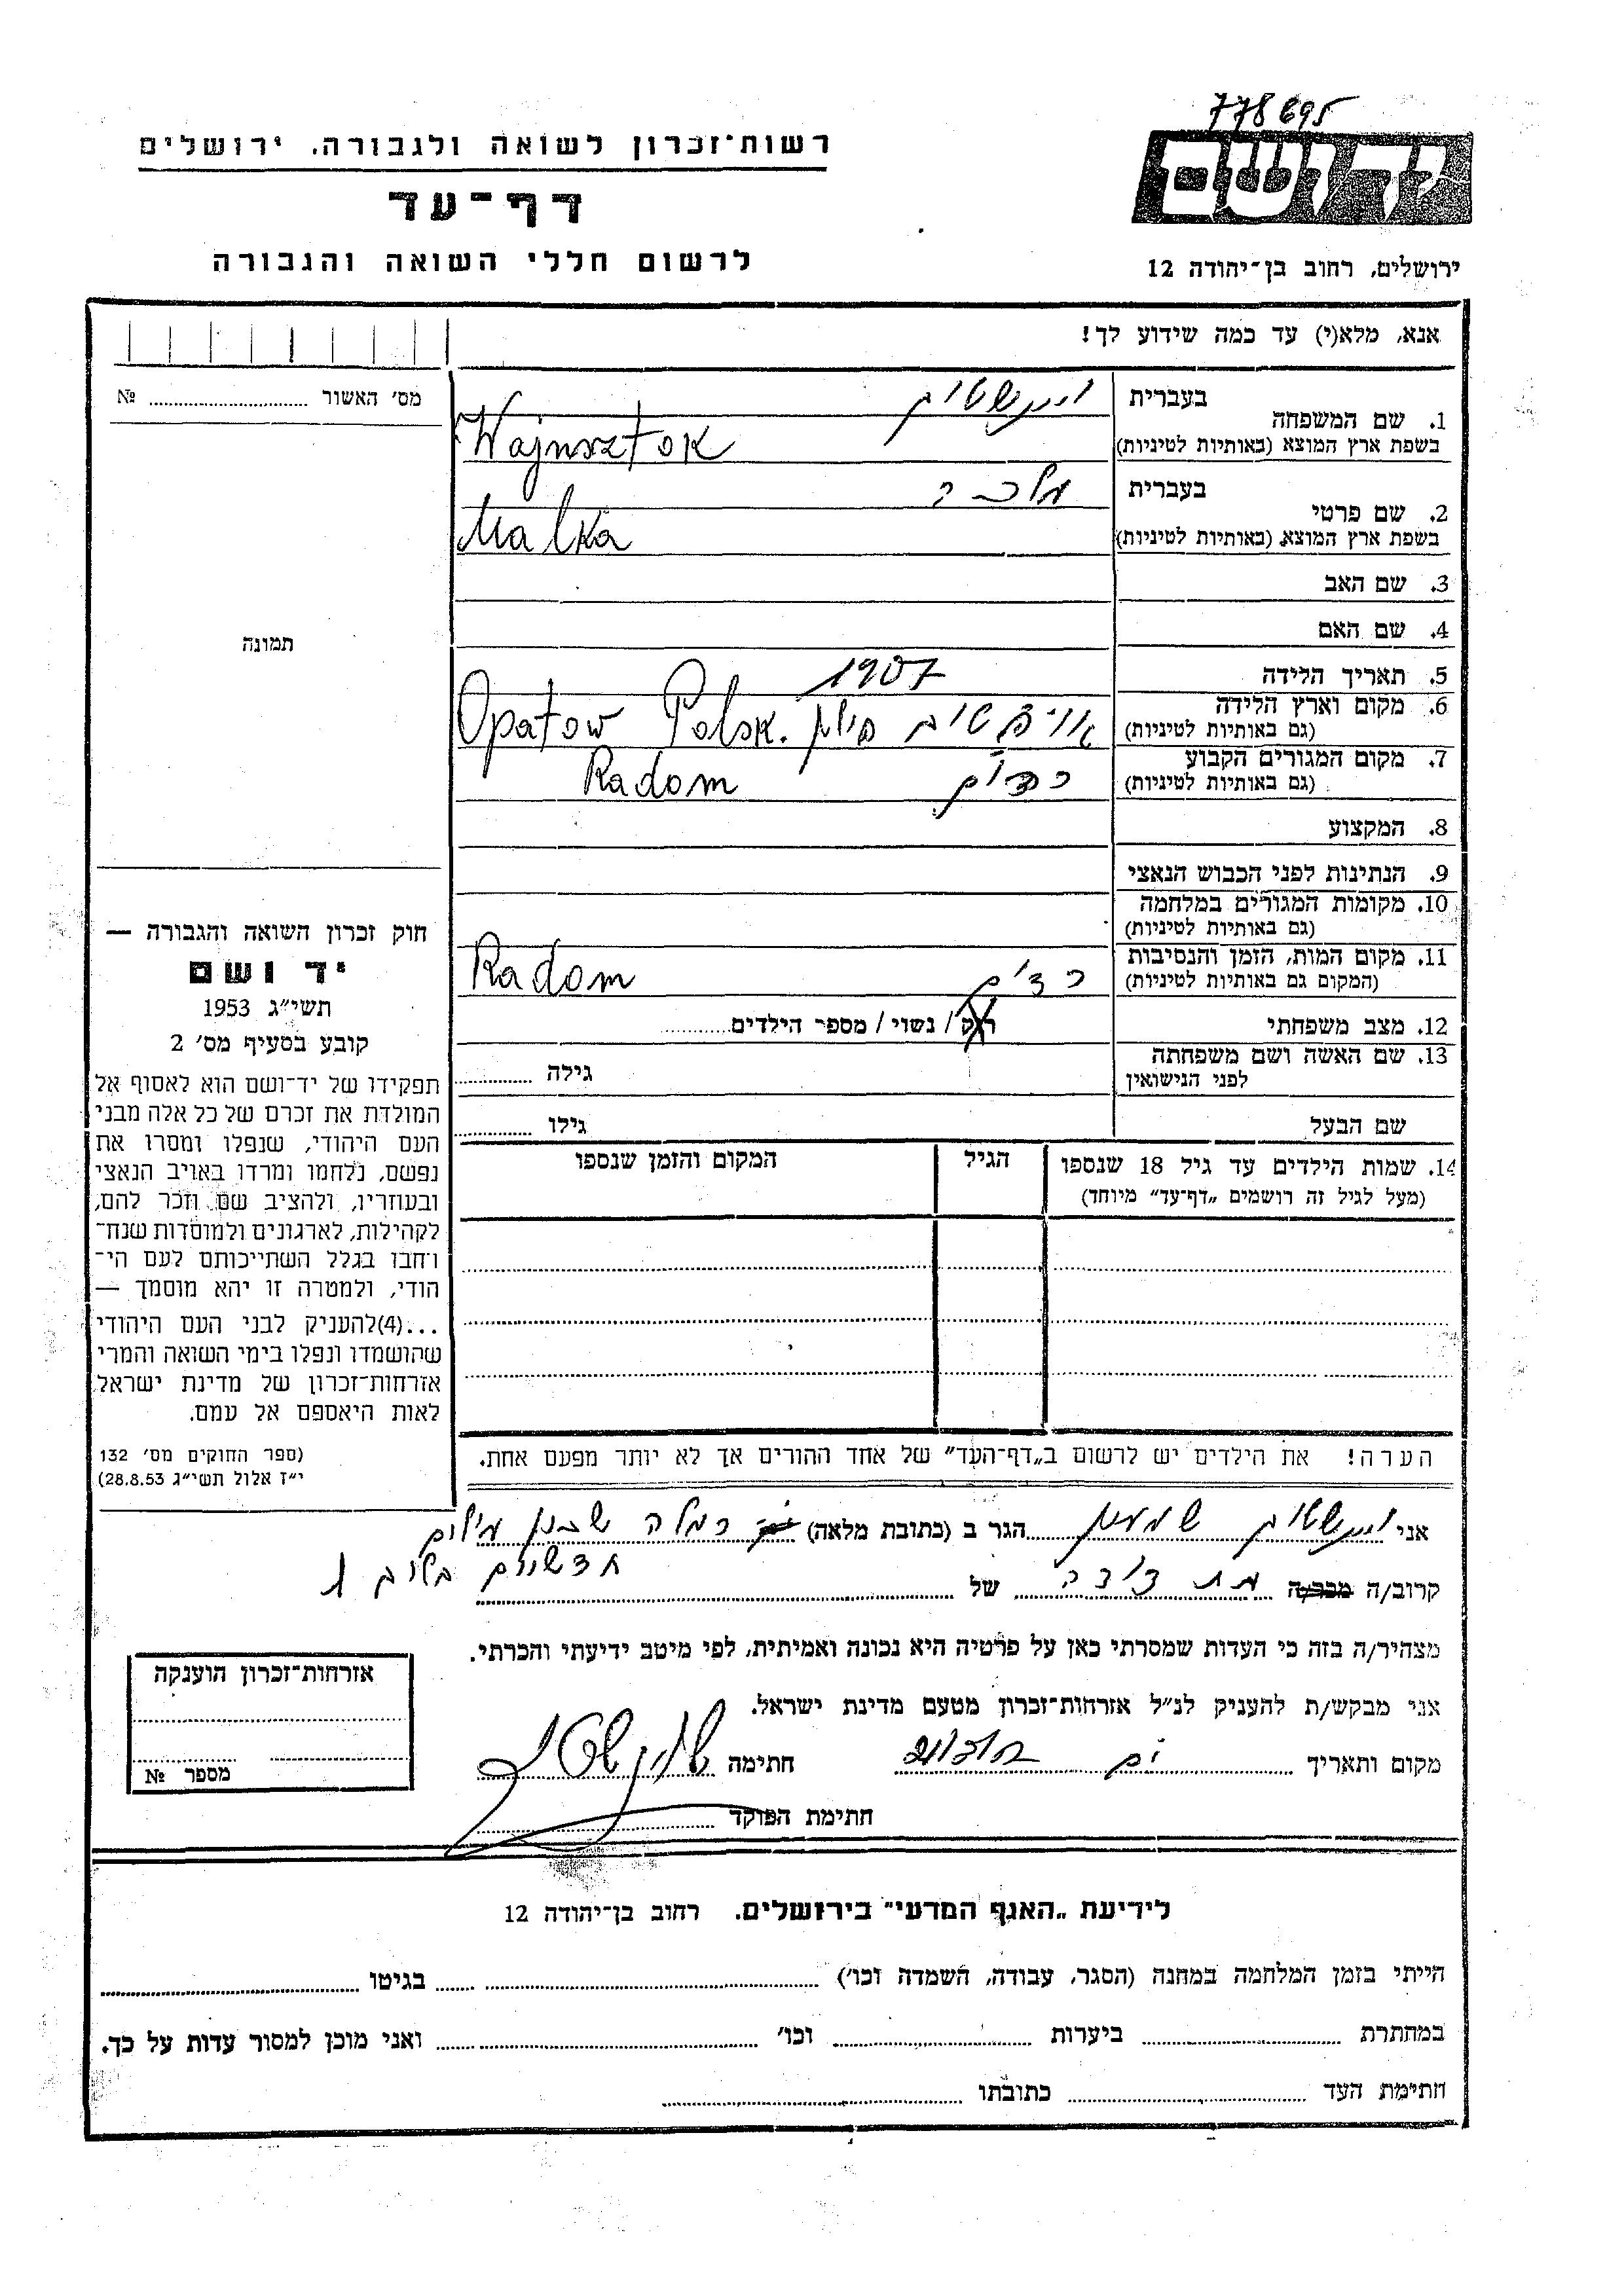 778695
יד ושם
רשות־זכרון לשואה ולגבורה, ירושלים
דף־עד
לרשום חללי השואה והגבורה
ירושלים, רחוב בן־יהודה 12
אנא, מלא(י) עד כמה שידוע לך!
מס׳ האשור № 
1. שם המשפחה בעברית
בשפת ארץ המוצא (באותיות לטיניות) Wajnsztok
2. שם פרטי בעברית מלכה
בשפת ארץ המוצא (באותיות לטיניות) Malka
3. שם האב
4. שם האם
תמונה
5. תאריך הלידה 1907
6. מקום וארץ הלידה
(גם באותיות לטיניות) פולין Opatow Polsk.
7. מקום המגורים הקבוע
(גם באותיות לטיניות) רדום Radom
8. המקצוע
9. הנתינות לפני הכבוש הנאצי
10. מקומות המגורים במלחמה
(גם באותיות לטיניות)
11. מקום המות, הזמן והנסיבות
(המקום גם באותיות לטיניות) רדום Radom
12. מצב משפחתי רוק / נשוי / מספר הילדים
13. שם האשה ושם משפחתה
לפני הנישואין גילה
שם הבעל גילו
14. שמות הילדים עד גיל 18 שנספו הגיל המקום והזמן שנספו
(מעל לגיל זה רושמים „דף־עד” מיוחד)
חוק זכרון השואה והגבורה —
יד ושם
תשי״ג 1953
קובע בסעיף מס׳ 2
תפקידו של יד־ושם הוא לאסוף אל
המולדת את זכרם של כל אלה מבני
העם היהודי, שנפלו ומסרו את
נפשם, נלחמו ומרדו באויב הנאצי
ובעוזריו, ולהציב שם וזכר להם,
לקהילות, לארגונים ולמוסדות שנח־
רבו בגלל השתייכותם לעם הי־
הודי, ולמטרה זו יהא מוסמך —
...(4)להעניק לבני העם היהודי
שהושמדו ונפלו בימי השואה והמרי
אזרחות־זכרון של מדינת ישראל
לאות היאספם אל עמם.
(ספר החוקים מס׳ 132
י״ז אלול תשי״ג 28.8.53)
הערה! את הילדים יש לרשום ב„דף־העד” של אחד ההורים אך לא יותר מפעם אחת.
אני שמעון הגר ב (כתובת מלאה) רמלה שכון
קרוב/ה מכר/ה בת דודה של
מצהיר/ה בזה כי העדות שמסרתי כאן על פרטיה היא נכונה ואמיתית, לפי מיטב ידיעתי והכרתי.
אני מבקש/ת להעניק לנ״ל אזרחות־זכרון מטעם מדינת ישראל.
מקום ותאריך חתימה
חתימת הפוקד
אזרחות־זכרון הוענקה
מספר №
לידיעת „האגף המדעי” בירושלים. רחוב בן־יהודה 12
הייתי בזמן המלחמה במחנה (הסגר, עבודה, השמדה וכו׳) בגיטו
במחתרת ביערות וכו׳ ואני מוכן למסור עדות על כך.
חתימת העד כתובתו